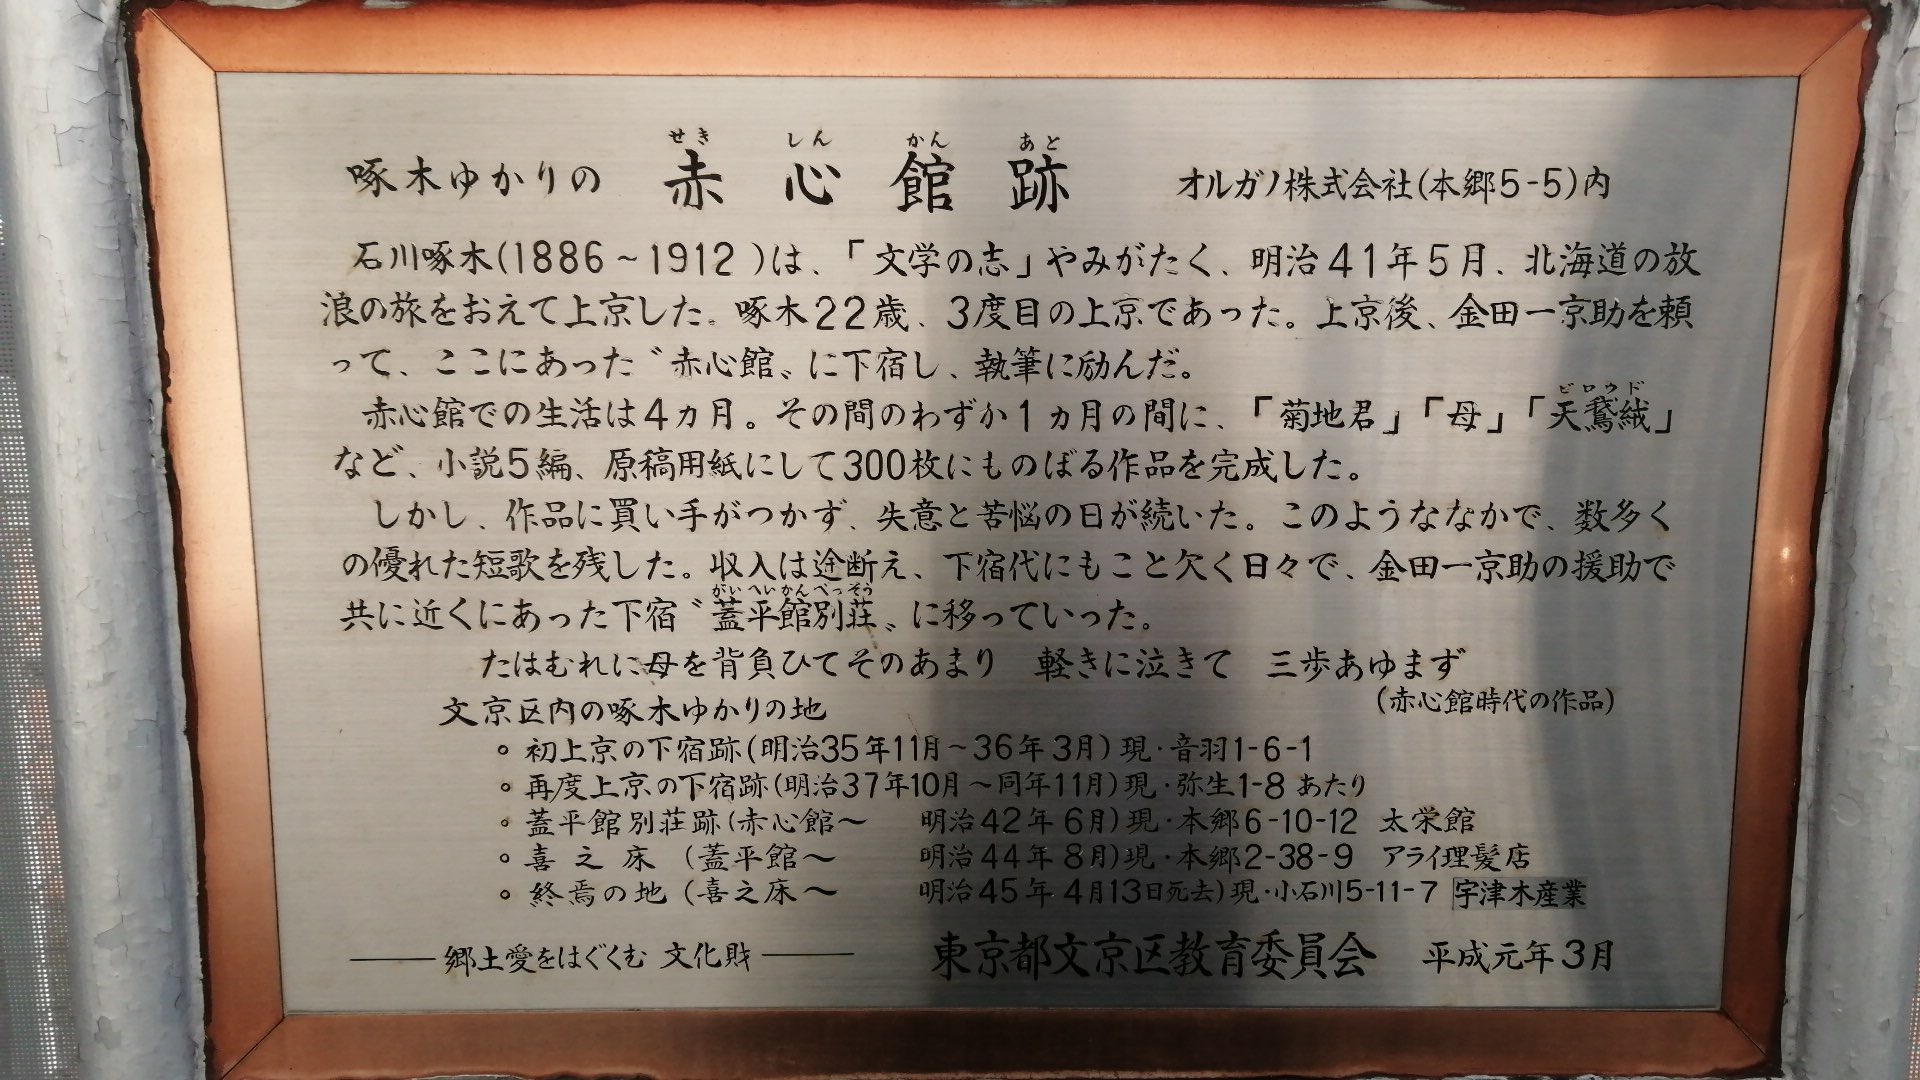 啄木ゆかりの 赤心館跡 オルガノ株式会社(本郷5-5)内
せき しん かん あと
石川啄木(1886~1912)は、「文学の志」やみがたく、明治41年5月、北海道の放
浪の旅をおえて上京した。啄木22歳、3度目の上京であった。上京後、金田一京助を頼
って、ここにあった〝赤心館〟に下宿し、執筆に励んだ。
赤心館での生活は4ヵ月。その間のわずか1ヵ月の間に、「菊地君」「母」「天鵞絨」
ビロウド
など、小説5編、原稿用紙にして300枚にものぼる作品を完成した。
しかし、作品に買い手がつかず、失意と苦悩の日が続いた。このようななかで、数多く
の優れた短歌を残した。収入は途断え、下宿代にもこと欠く日々で、金田一京助の援助で
共に近くにあった下宿〝蓋平館別荘〟に移っていった。
がいへいかんべっそう
たはむれに母を背負ひてそのあまり 軽きに泣きて 三歩あゆまず
(赤心館時代の作品)
文京区内の啄木ゆかりの地
○ 初上京の下宿跡(明治35年11月~36年3月)現・音羽1-6-1
○ 再度上京の下宿跡(明治37年10月~同年11月)現・弥生1-8 あたり
○ 蓋平館別荘跡(赤心館~ 明治42年6月)現・本郷6-10-12 太栄館
○ 喜之床 (蓋平館~ 明治44年8月)現・本郷2-38-9 アライ理髪店
○ 終焉の地 (喜之床~ 明治45年4月13日死去)現・小石川5-11-7 宇津木産業
郷土愛をはぐくむ 文化財 東京都文京区教育委員会 平成元年3月